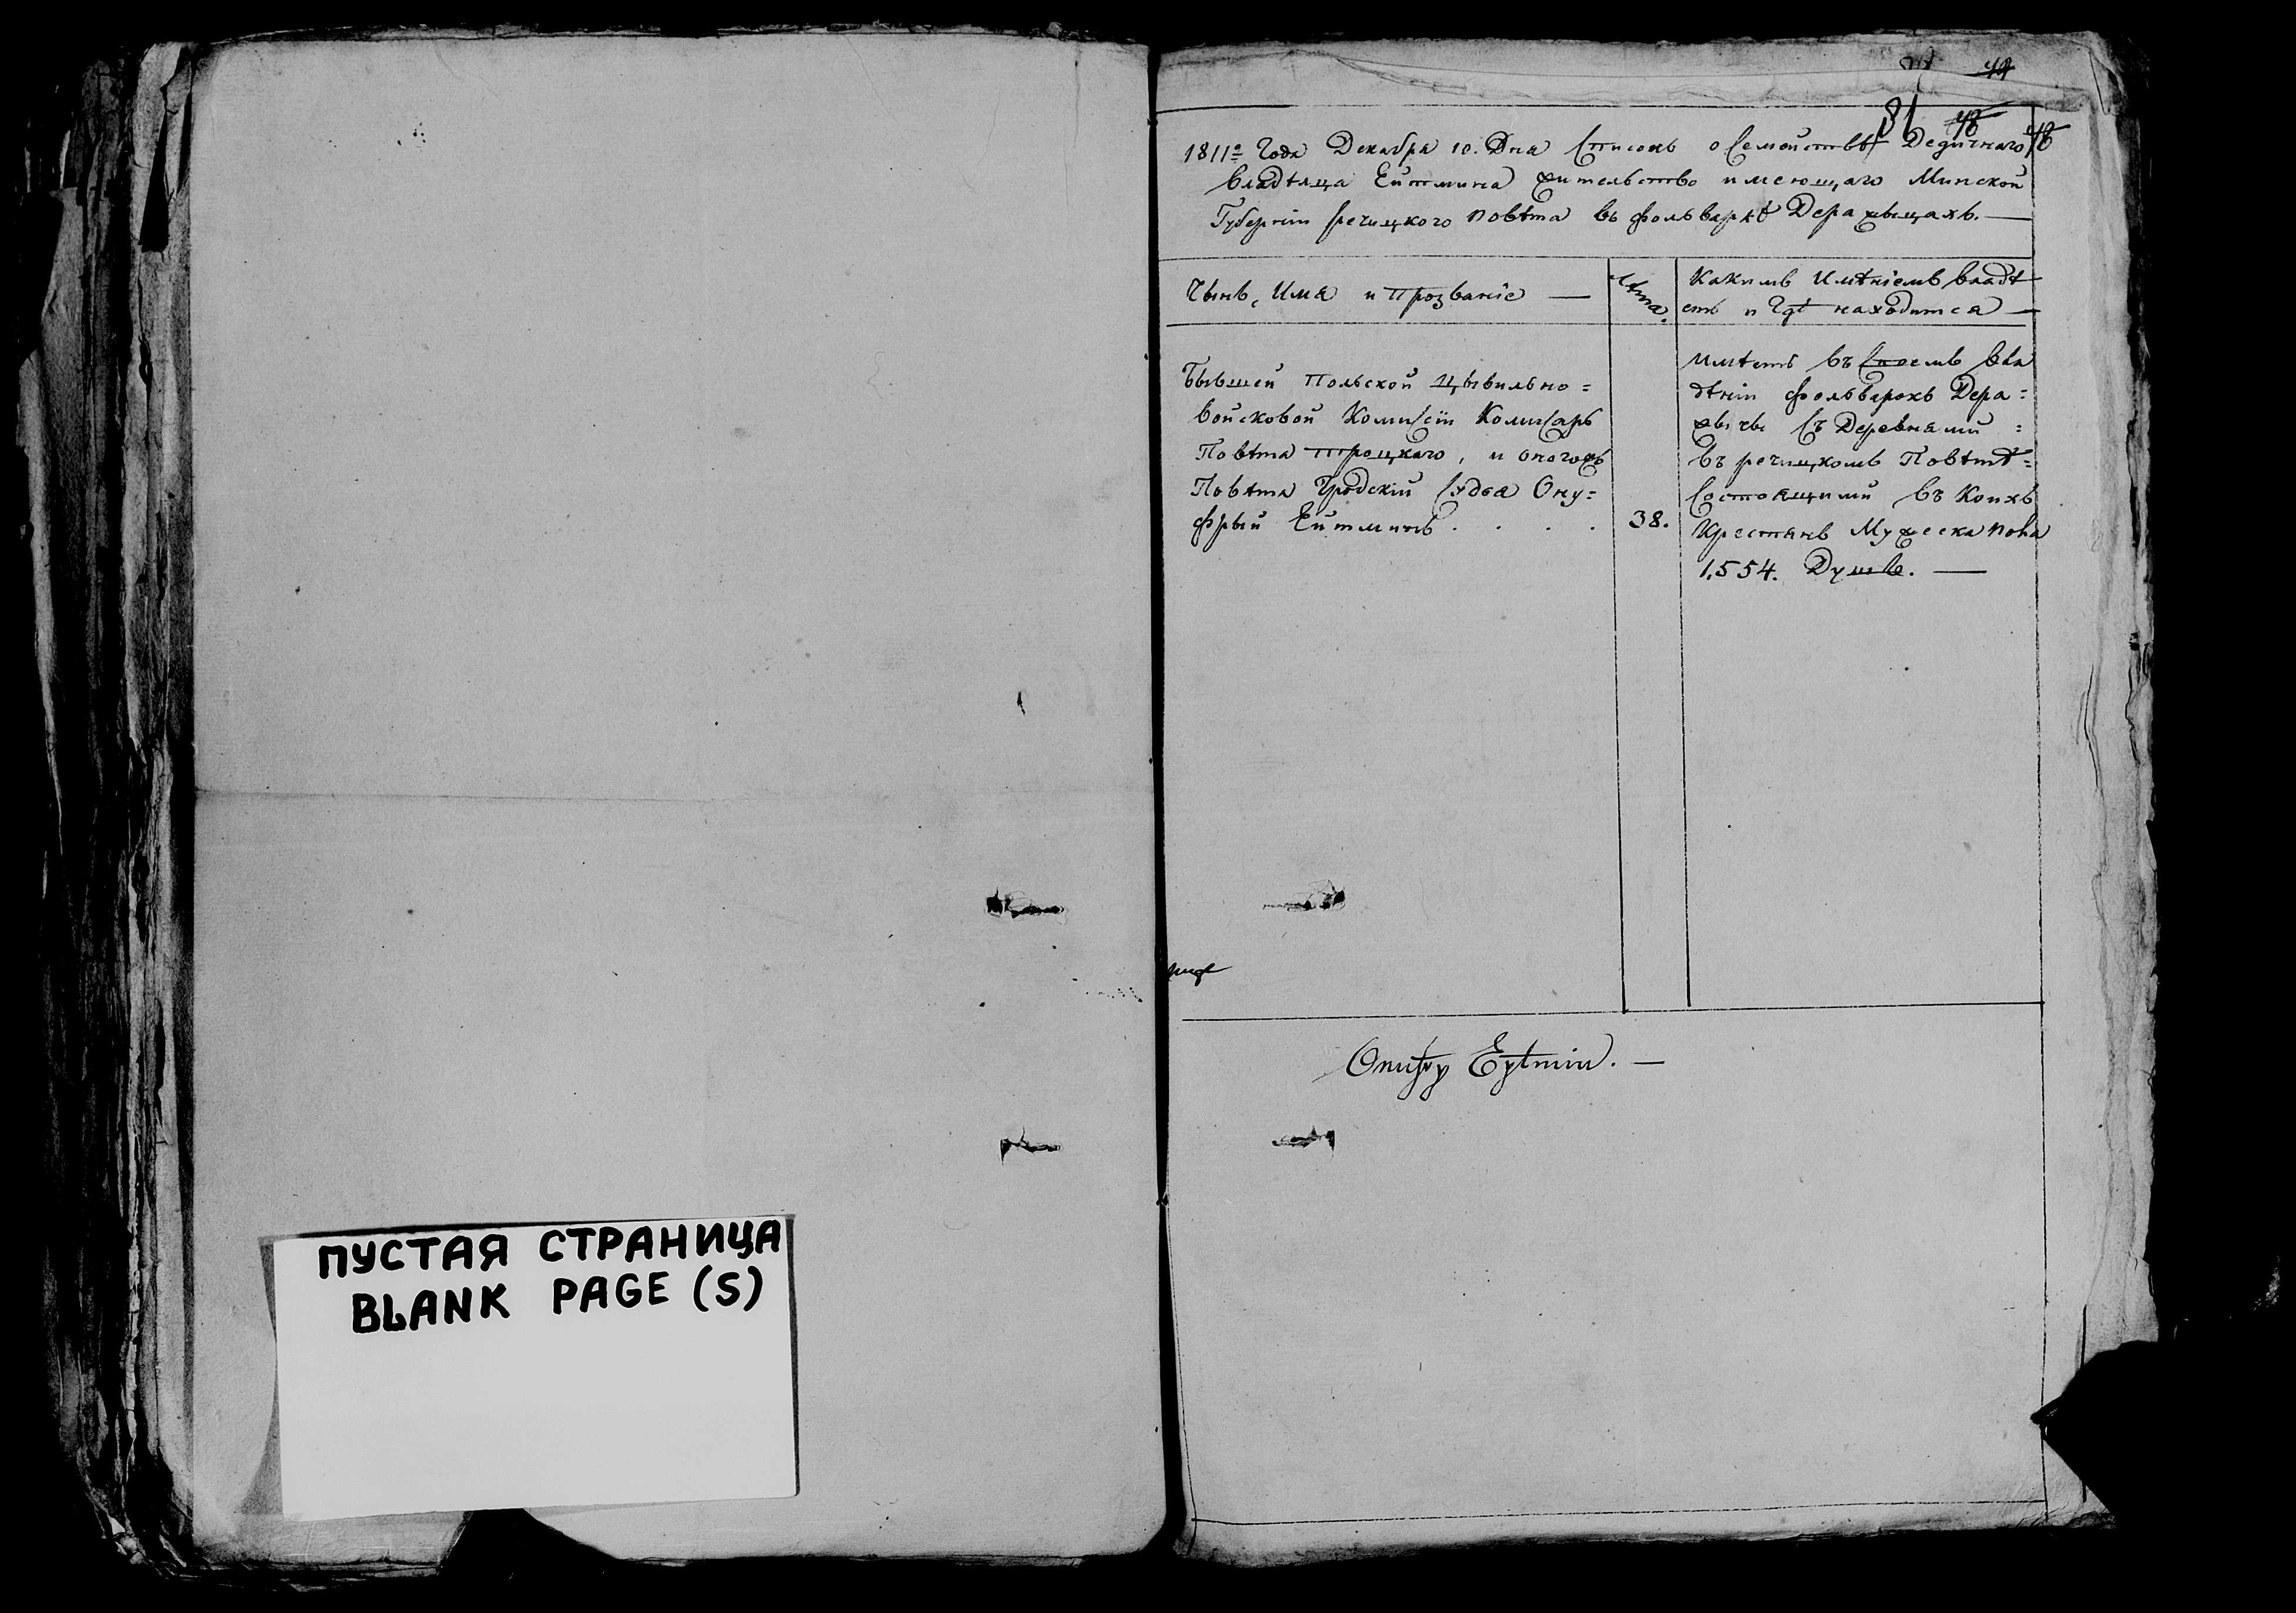 ПУСТАЯ СТРАНИЦА
BLANK PAGE (S)
49
31 48 48
1811го Года Декабря 10. Дня Список о Семействѣ Дедичнаго
владѣлца Ейтмина жительство имеющаго Минской
Губернiи речицкого повѣта въ фольваркѣ Деражыцахъ. —
Чынъ, Имя и Прозванiе —
Лѣта.
Какимъ Имѣнiемъ владѣ
етъ и Гдѣ находится —
Бывшей Польской Цывильно =
войсковой Комиссiи Комисаръ
Повѣта Троцкаго, и оногожъ
Повѣта Гродскiй Судья Ону=
фрый Ейтминъ . . . .
38.
имѣетъ въ Своемъ вла
дѣнiи фольварокъ Дера =
жычы съ Деревнями =
въ речицкомъ Повѣтѣ =
Состоящими въ Коихъ
Крестянъ Мужеска пола
1.554. Душъ. —
Onufry Eytmin. —